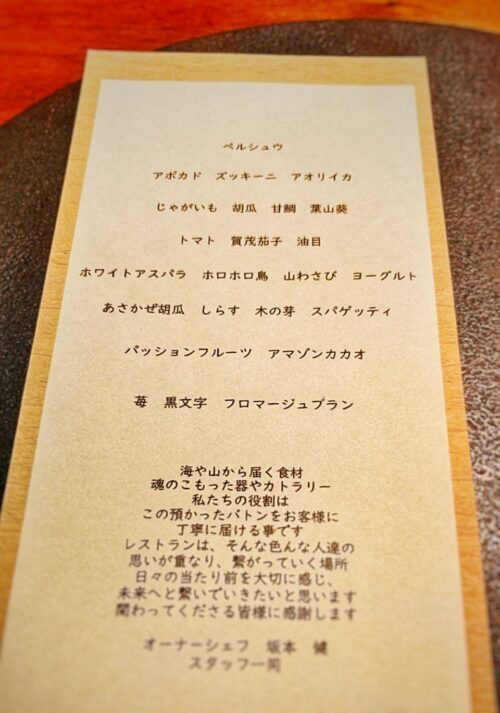 ペルシュウ
アボカド ズッキーニ アオリイカ
じゃがいも 胡瓜 甘鯛 葉山葵
トマト 賀茂茄子 油目
ホワイトアスパラ ホロホロ鳥 山わさび ヨーグルト
あさかぜ胡瓜 しらす 木の芽 スパゲッティ
パッションフルーツ アマゾンカカオ
苺 黒文字 フロマージュブラン
海や山から届く食材
魂のこもった器やカトラリー
私たちの役割は
この預かったバトンをお客様に
丁寧に届ける事です
レストランは、そんな色んな人達の
思いが重なり、繋がっていく場所
日々の当たり前を大切に感じ、
未来へと繋いでいきたいと思います
関わってくださる皆様に感謝します
オーナーシェフ 坂本 健
スタッフ一同